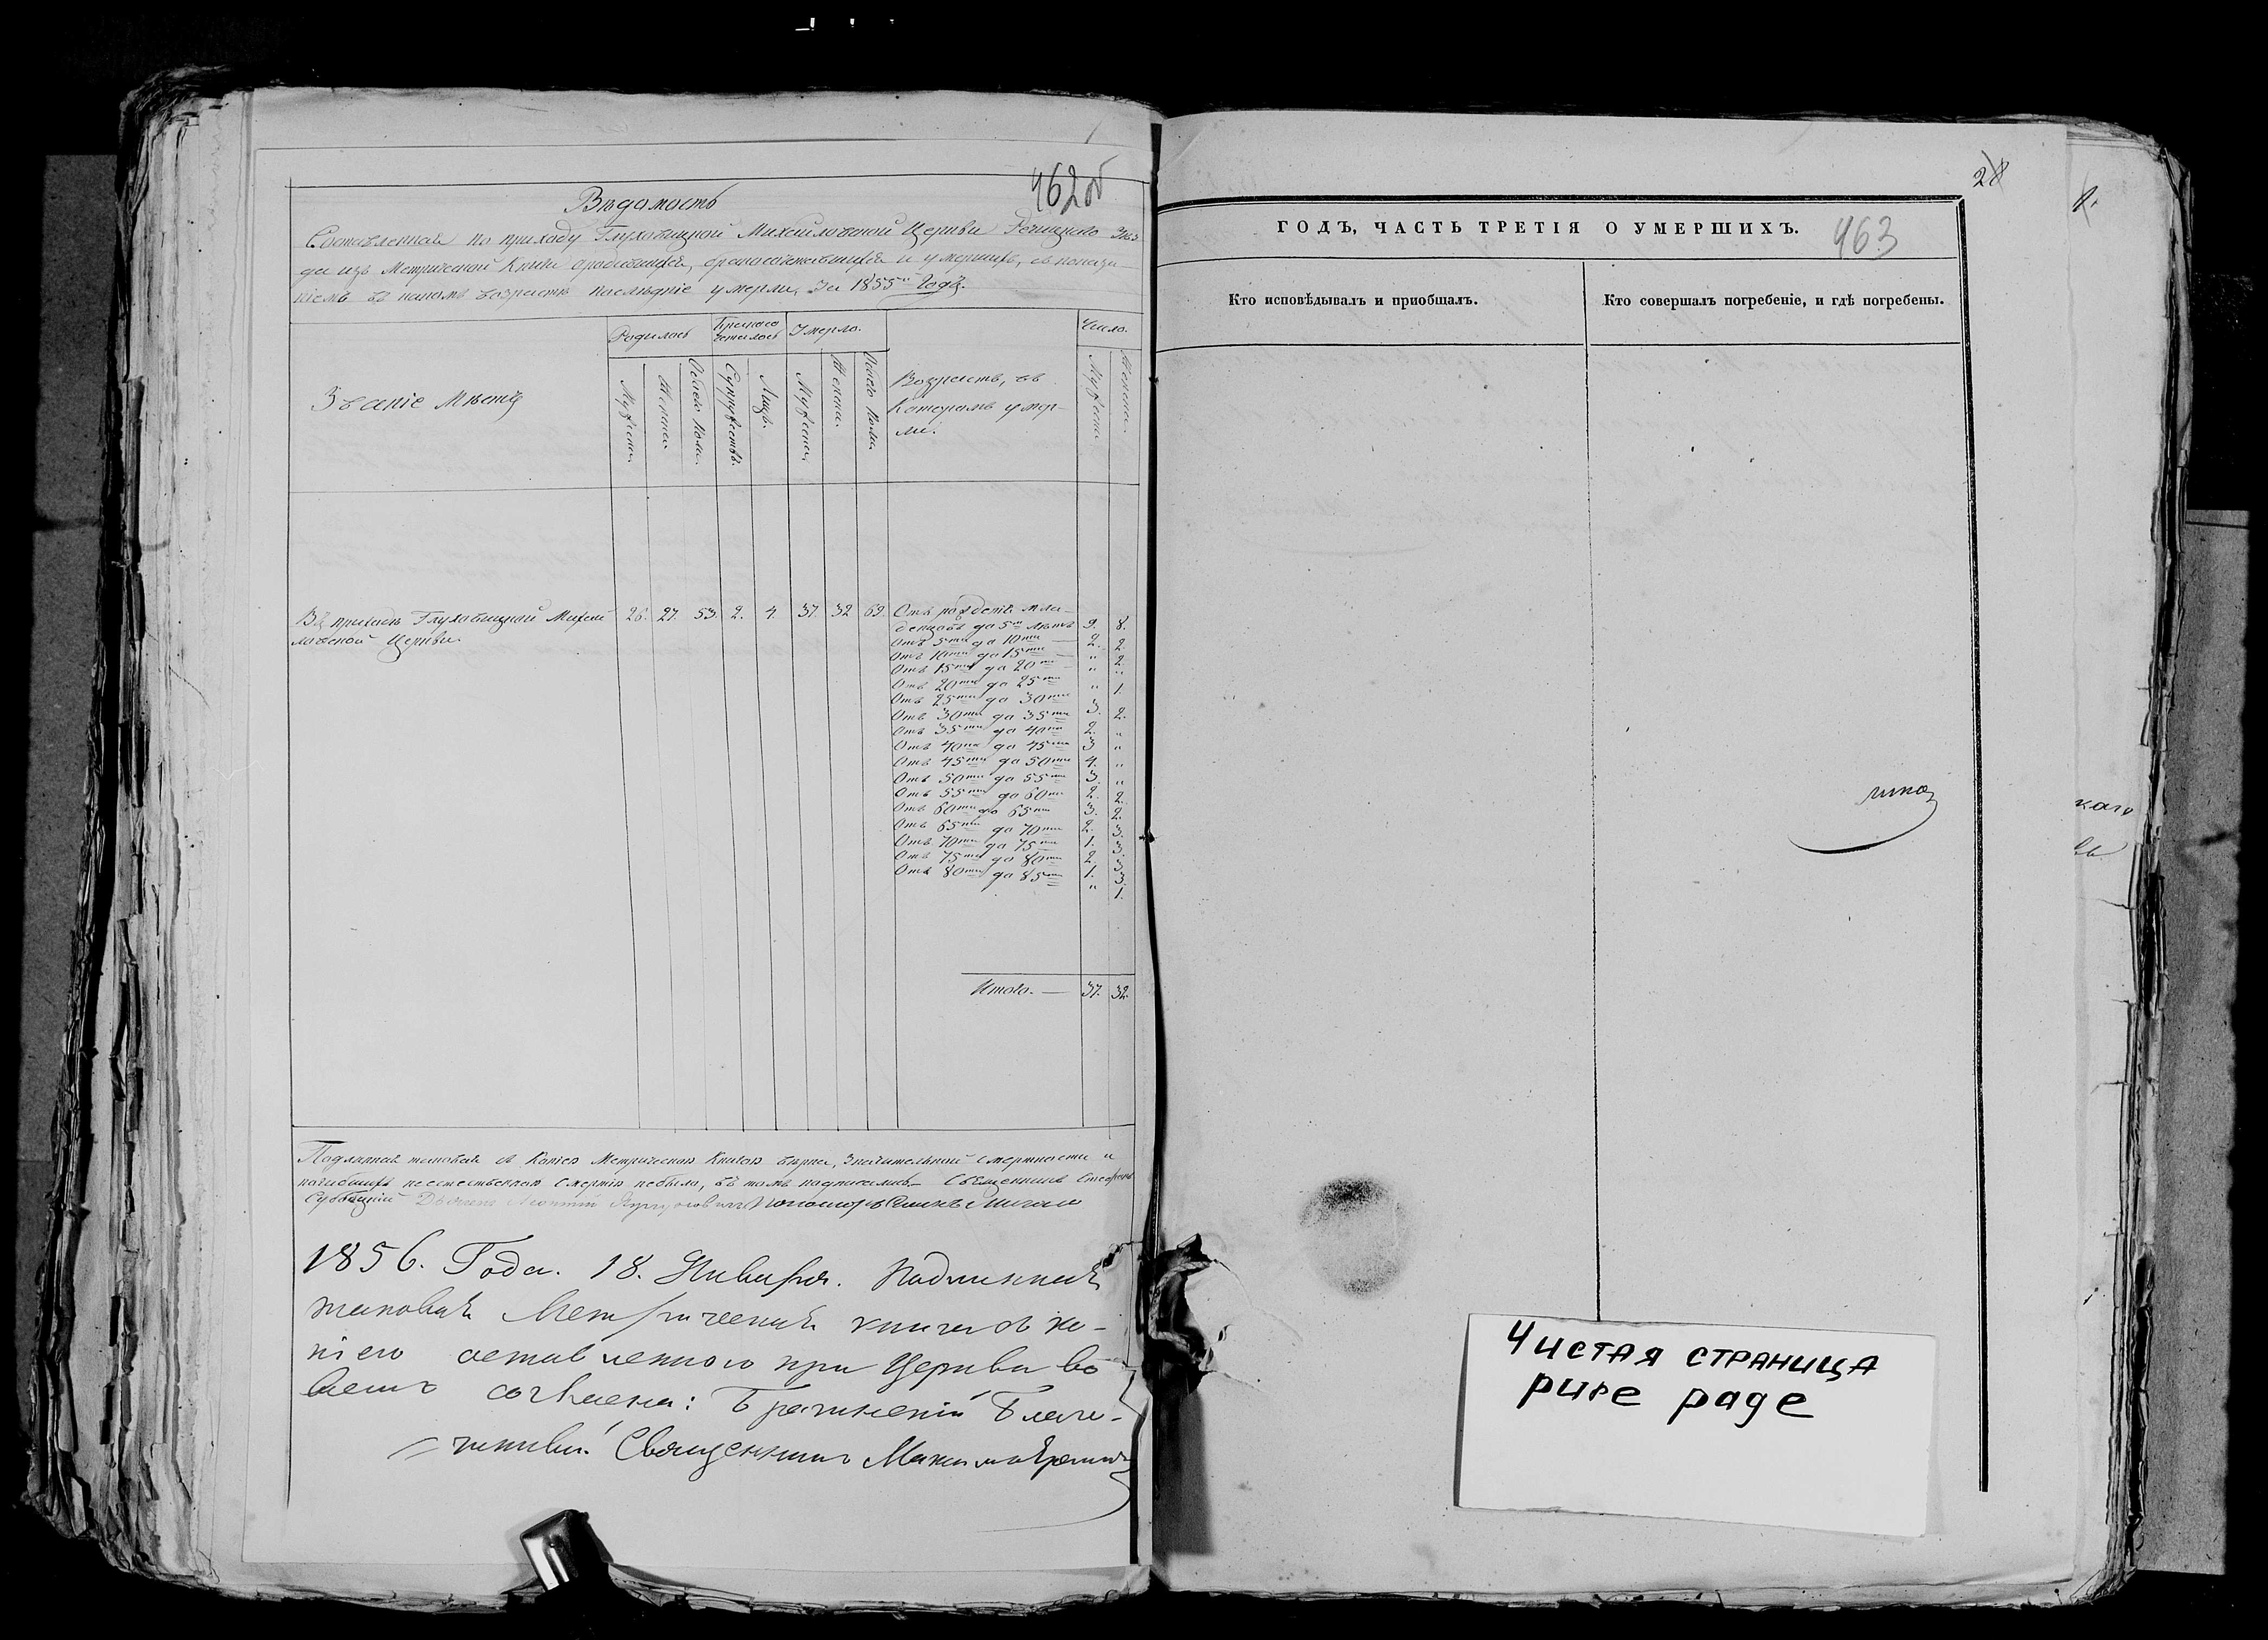 462об
Вѣдомость
Составленная по приходу Глуховицкой Михайловской Церкви Рѣчицкаго Уѣз
да изъ Метрической Книги о родившихся, бракосочетавшихся и умершихъ, съ показа
ніемъ въ какомъ возрастѣ послѣдніе умерли, за 1855й Годъ.
Званіе Мѣста
Родилось
Бракосо
четалось
Умерло.
Число.
Мужеска.
Женска
Обоего пола.
Супружествъ.
Лицъ.
Мужеска,
Женска.
Обоего пола.
Возрастъ, въ
которомъ умер-
ли.
Мужеска
Женска.
Въ приходѣ Глуховицкой Михай
ловской Церкви.
26. 27. 53. 2. 4. 37. 32 69.
Отъ рожденія мла-
денцовъ до 5ти лѣтъ 9. 8.
Отъ 5ти до 10ти — 2. 2.
Отъ 10ти до 15ти — „ 2.
Отъ 15ти до 20ти — „ „
Отъ 20ти до 25ти „ 1.
Отъ 25ти до 30ти 3. 2.
Отъ 30ти до 35ти 2. „
Отъ 35ти до 40ти 3 „
Отъ 40ти до 45ти 4. „
Отъ 45ти до 50ти 3. „
Отъ 50ти до 55ти 2. 2.
Отъ 55ти до 60ти 3. 2.
Отъ 60ти до 65ти 2. 3.
Отъ 65ти до 70ти 1. 3.
Отъ 70ти до 75ти 2. 3
Отъ 75ти до 80ти 1. 3.
Отъ 80ти до 85ти „ 1.
Итого. — 37. 32.
Подлинная таковая съ Копіею Метрическою Книгою вѣрна, Значительной смертности и
погибшихъ неестественною смертію небыло, въ томъ подписались — Священникъ Стефанъ
1856. Года. 18. Января. Подлинная
таковая Метрическая книга съ ко-
піею оставленною при Церкви во
всемъ согласна: Брагинскій Благо-
чинный Священникъ
28
463
ГОДЪ, ЧАСТЬ ТРЕТІЯ О УМЕРШИХЪ.
Кто исповѣдывалъ и пріобщалъ.
Кто совершалъ погребеніе, и гдѣ погребены.
каго
Чистая страница
pure page